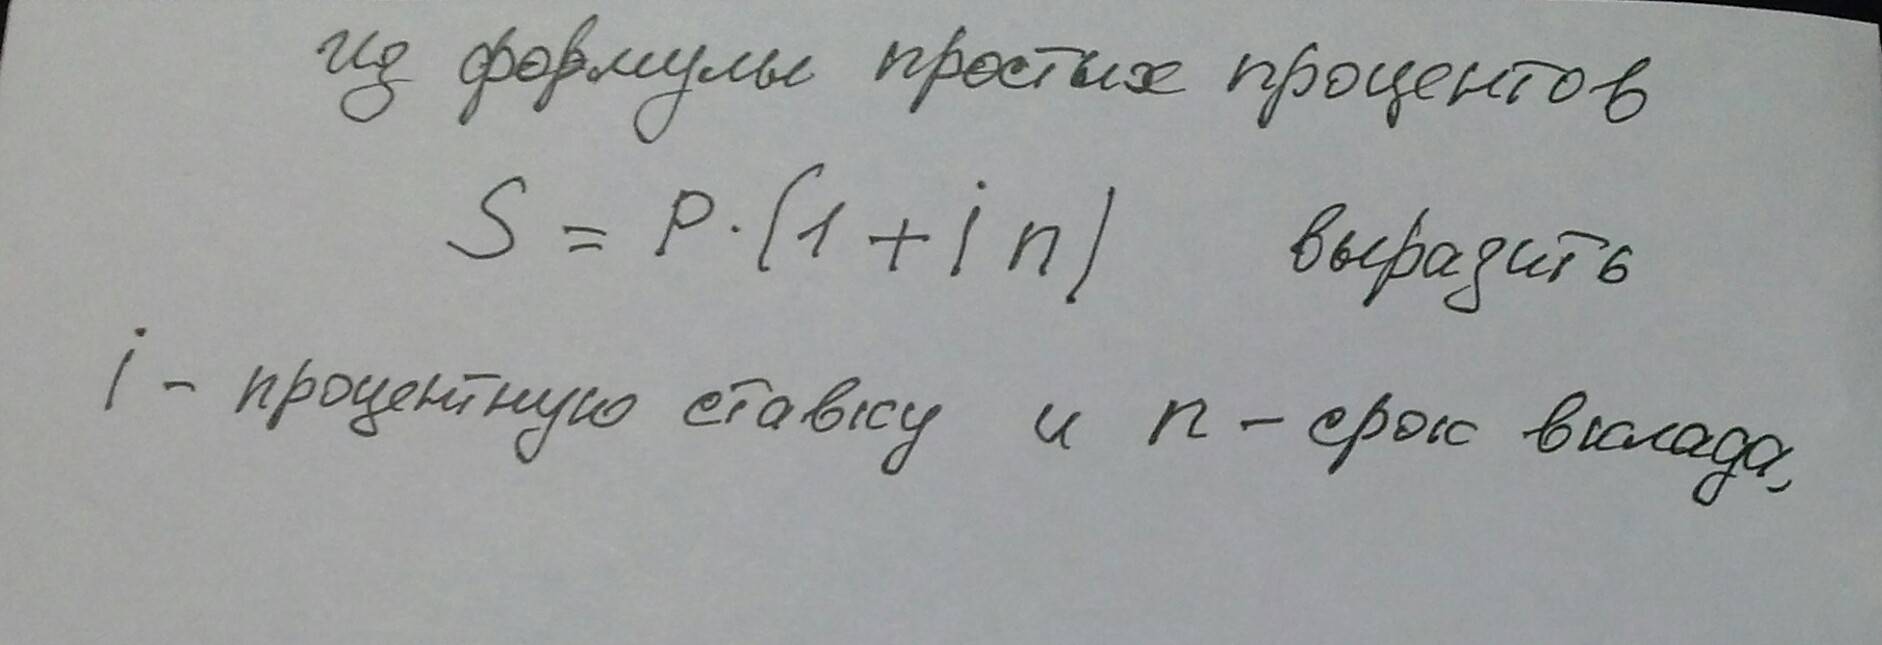 из формулы простых процентов
S = P · (1 + i n) выразить
i - процентную ставку и n - срок вклада,